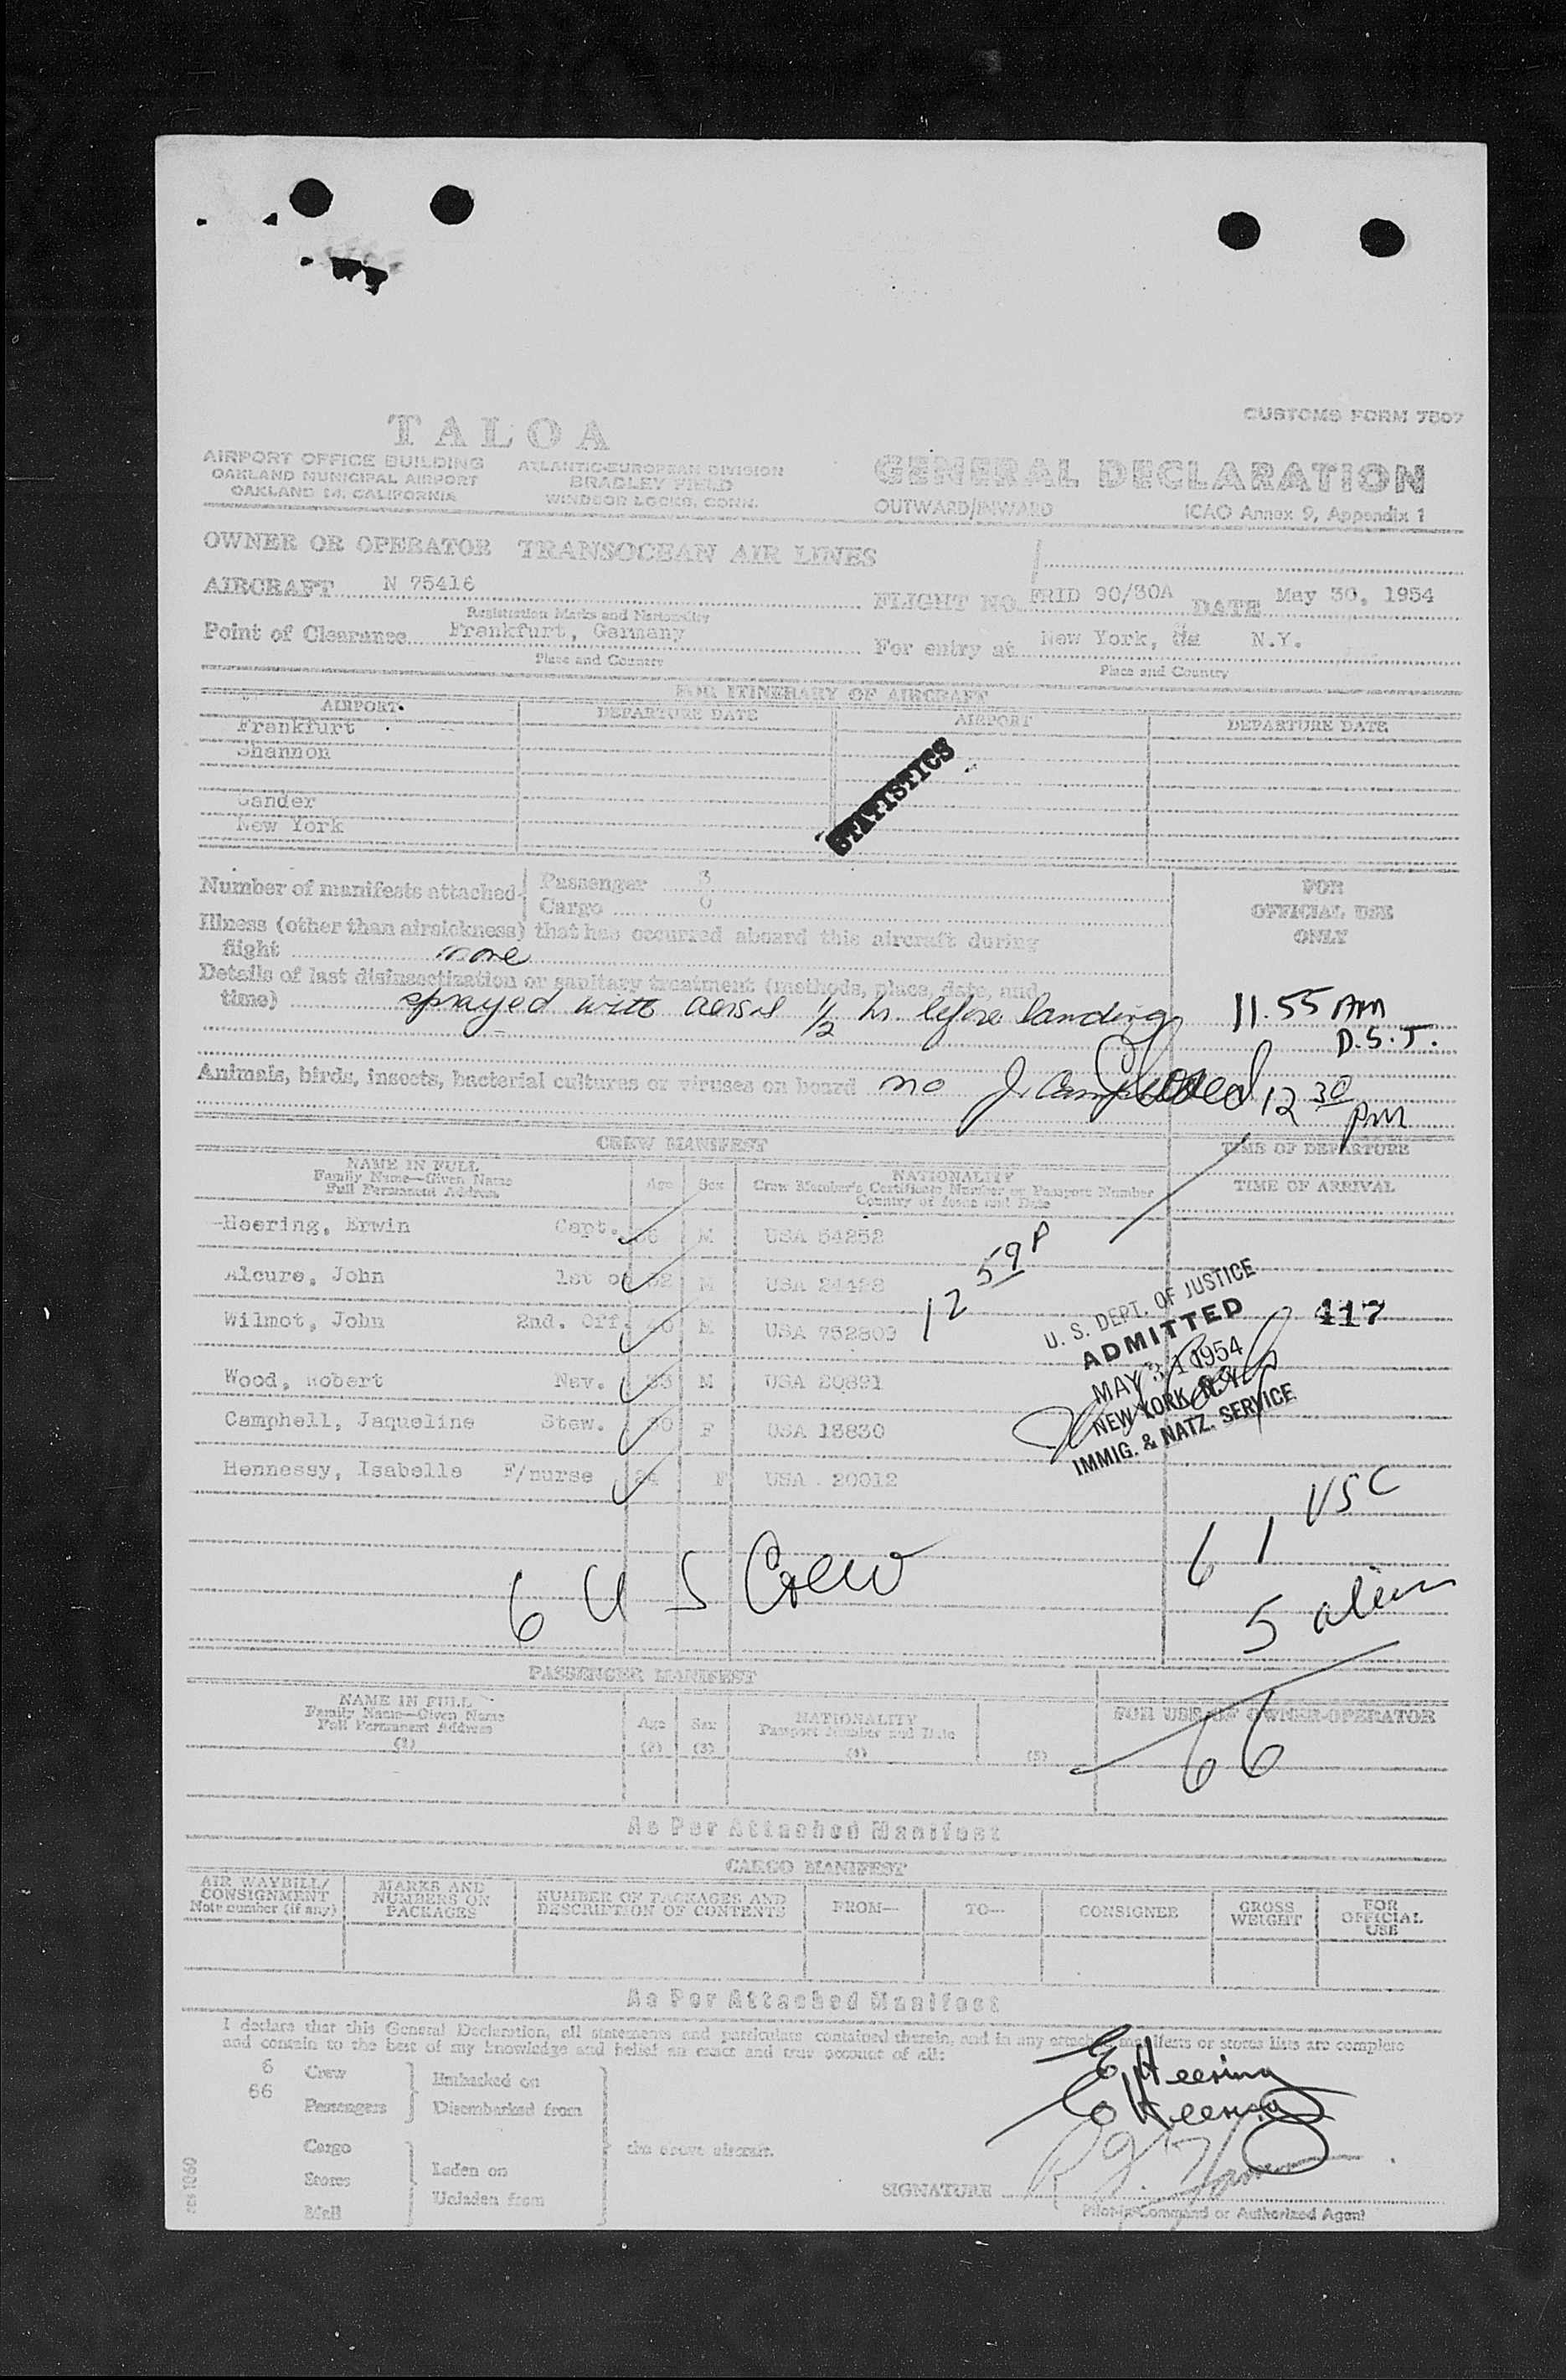 CUSTOMS FORM 7507
TALOA
AIRPORT OFFICE BUILDING
OAKLAND MUNICIPAL AIRPORT
OAKLAND 14, CALIFORNIA
ATLANTIC-EUROPEAN DIVISION
BRADLEY FIELD
WINDSOR LOCKS, CONN.
GENERAL DECLARATION
OUTWARD/INWARD
ICAO Annex 9, Appendix 1
OWNER OR OPERATOR TRANSOCEAN AIR LINES
AIRCRAFT N 75416
Registration Marks and Nationality
FLIGHT NO. FRID 90/30A DATE May 30, 1954
Point of Clearance Frankfurt, Germany
Place and Country
For entry at New York, N.Y.
Place and Country
FOR ITINERARY OF AIRCRAFT
AIRPORT DEPARTURE DATE AIRPORT DEPARTURE DATE
Frankfurt
Shannon
Gander
New York
STATISTICS
Number of manifests attached
Passenger 3
Cargo 0
FOR
OFFICIAL USE
ONLY
Illness (other than airsickness) that has occurred aboard this aircraft during
flight none
Details of last disinsectization or sanitary treatment (methods, place, date, and
time) sprayed with 1/2 hr. before landing
11.55 AM
D.S.T.
Animals, birds, insects, bacterial cultures or viruses on board no J. Campbell
12 30 pm
CREW MANIFEST
TIME OF DEPARTURE
TIME OF ARRIVAL
NAME IN FULL
Family Name—Given Name
Full Permanent Address
Age
Sex
NATIONALITY
Crew Member's Certificate Number or Passport Number
Country of Issue and Date
Heering, Erwin Capt. M USA 54252
Alcure, John 1st of 32 M USA 24428
Wilmot, John 2nd. Off. 40 M USA 752809
Wood, Robert Nav. 33 M USA 20891
Camphell, Jaqueline Stew. 30 F USA 13830
Hennessy, Isabelle F/nurse 24 F USA 20012
12 59 P
U. S. DEPT. OF JUSTICE
ADMITTED
MAY 31 1954
NEW YORK, N.Y.
IMMIG. & NATZ. SERVICE
417
61 USC
5 alien
66
6 U S Crew
PASSENGER MANIFEST
NAME IN FULL
Family Name—Given Name
Full Permanent Address
(1)
Age
(2)
Sex
(3)
NATIONALITY
Passport Number and Date
(4)
(5)
FOR USE OF OWNER-OPERATOR
As Per Attached Manifest
CARGO MANIFEST
AIR WAYBILL/
CONSIGNMENT
Note number (if any)
MARKS AND
NUMBERS ON
PACKAGES
NUMBER OF PACKAGES AND
DESCRIPTION OF CONTENTS
FROM—
TO—
CONSIGNEE
GROSS
WEIGHT
FOR
OFFICIAL
USE
As Per Attached Manifest
I declare that this General Declaration, all statements and particulars contained therein, and in any attached manifests or stores lists are complete
and contain to the best of my knowledge and belief an exact and true account of all:
6 Crew
66 Passengers
Embarked on
Disembarked from
Cargo
Stores
Mail
Laden on
Unladen from
the above aircraft.
E Heering
E Heering
SIGNATURE
Pilot-in-Command or Authorized Agent